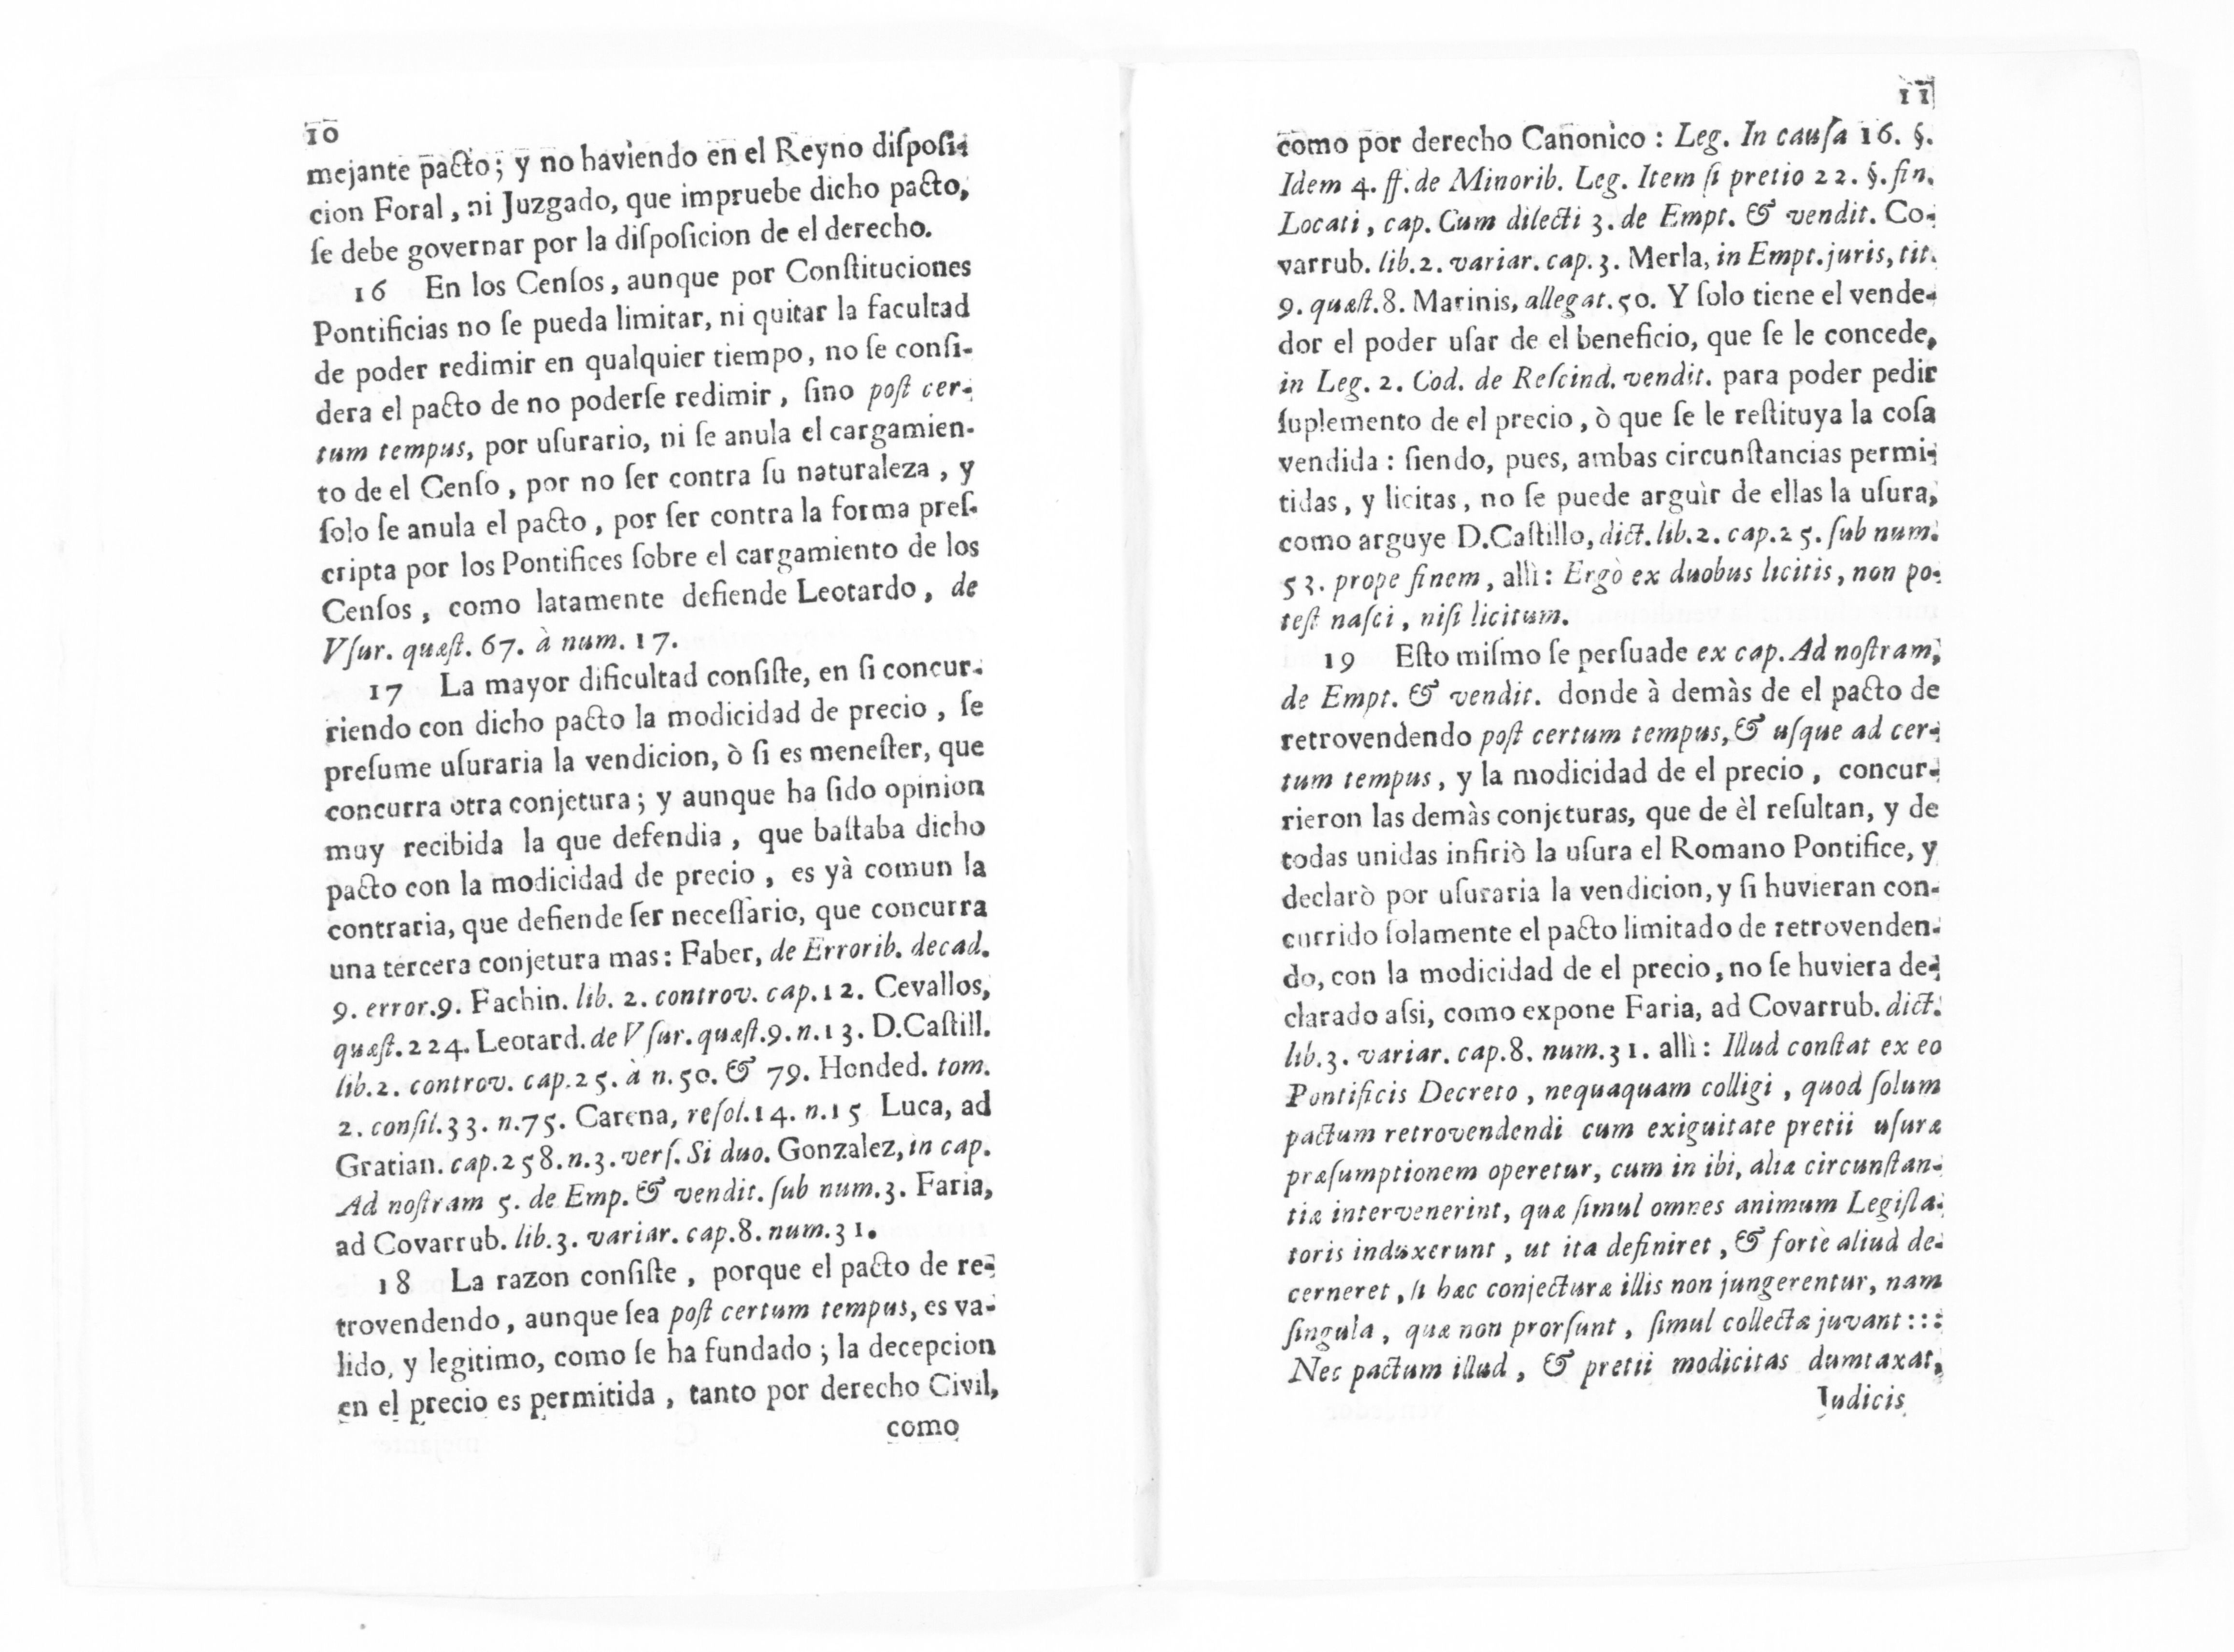 10
mejante pacto; y no haviendo en el Reyno disposi-
cion Foral, ni Juzgado, que impruebe dicho pacto,
ſe debe governar por la diſpoſicion de el derecho.
16 En los Cenſos, aunque por Conſtituciones
Pontificias no ſe pueda limitar, ni quitar la facultad
de poder redimir en qualquier tiempo, no ſe conſi-
dera el pacto de no poderſe redimir, ſino poſt cer-
tum tempus, por uſurario, ni ſe anula el cargamien-
to de el Cenſo, por no ſer contra ſu naturaleza, y
ſolo ſe anula el pacto, por ſer contra la forma preſ-
cripta por los Pontifices ſobre el cargamiento de los
Cenſos, como latamente defiende Leotardo, de
Vſur. quæſt. 67. à num. 17.
17 La mayor dificultad conſiſte, en ſi concur-
riendo con dicho pacto la modicidad de precio, ſe
preſume uſuraria la vendicion, ò ſi es meneſter, que
concurra otra conjetura; y aunque ha ſido opinion
muy recibida la que defendia, que baſtaba dicho
pacto con la modicidad de precio, es yà comun la
contraria, que defiende ſer neceſſario, que concurra
una tercera conjetura mas: Faber, de Errorib. decad.
9. error.9. Fachin. lib. 2. controv. cap.12. Cevallos,
quæſt.224. Leotard. de Vſur. quæſt.9.n.13. D.Caſtill.
lib.2. controv. cap.25. à n.50. & 79. Honded. tom.
2. conſil.33. n.75. Carena, reſol.14. n.15 Luca, ad
Gratian. cap.258.n.3.verſ. Si duo. Gonzalez, in cap.
Ad noſtram 5. de Emp. & vendit. ſub num.3. Faria,
ad Covarrub. lib.3. variar. cap.8. num.31.
18 La razon conſiſte, porque el pacto de re-
trovendendo, aunque ſea poſt certum tempus, es va-
lido, y legitimo, como ſe ha fundado; la decepcion
en el precio es permitida, tanto por derecho Civil,
como
11
como por derecho Canonico: Leg. In cauſa 16. §.
Idem 4. ff. de Minorib. Leg. Item ſi pretio 22. §. fin.
Locati, cap. Cum dilecti 3. de Empt. & vendit. Co-
varrub. lib.2. variar. cap.3. Merla, in Empt. juris, tit.
9. quæſt.8. Marinis, allegat.50. Y ſolo tiene el vende-
dor el poder uſar de el beneficio, que ſe le concede,
in Leg. 2. Cod. de Reſcind. vendit. para poder pedir
ſuplemento de el precio, ò que ſe le reſtituya la coſa
vendida: ſiendo, pues, ambas circunſtancias permi-
tidas, y licitas, no ſe puede arguìr de ellas la uſura,
como arguye D.Caſtillo, dict. lib.2. cap.25. ſub num.
53. prope finem, allì: Ergò ex duobus licitis, non po-
teſt naſci, niſi licitum.
19 Eſto miſmo ſe perſuade ex cap. Ad noſtram,
de Empt. & vendit. donde à demàs de el pacto de
retrovendendo poſt certum tempus, & uſque ad cer-
tum tempus, y la modicidad de el precio, concur-
rieron las demàs conjeturas, que de èl reſultan, y de
todas unidas infiriò la uſura el Romano Pontifice, y
declarò por uſuraria la vendicion, y ſi huvieran con-
currido ſolamente el pacto limitado de retrovenden-
do, con la modicidad de el precio, no ſe huviera de-
clarado aſsi, como expone Faria, ad Covarrub. dict.
lib.3. variar. cap.8. num.31. allì: Illud conſtat ex eo
Pontificis Decreto, nequaquam colligi, quod ſolum
pactum retrovendendi cum exiguitate pretii uſuræ
præſumptionem operetur, cum in ibi, aliæ circunſtan-
tiæ intervenerint, quæ ſimul omnes animum Legiſla-
toris induxerunt, ut ita definiret, & fortè aliud de-
cerneret, ſi hæc conjecturæ illis non jungerentur, nam
ſingula, quæ non prorſunt, ſimul collectæ juvant:::
Nec pactum illud, & pretii modicitas dumtaxat,
Iudicis